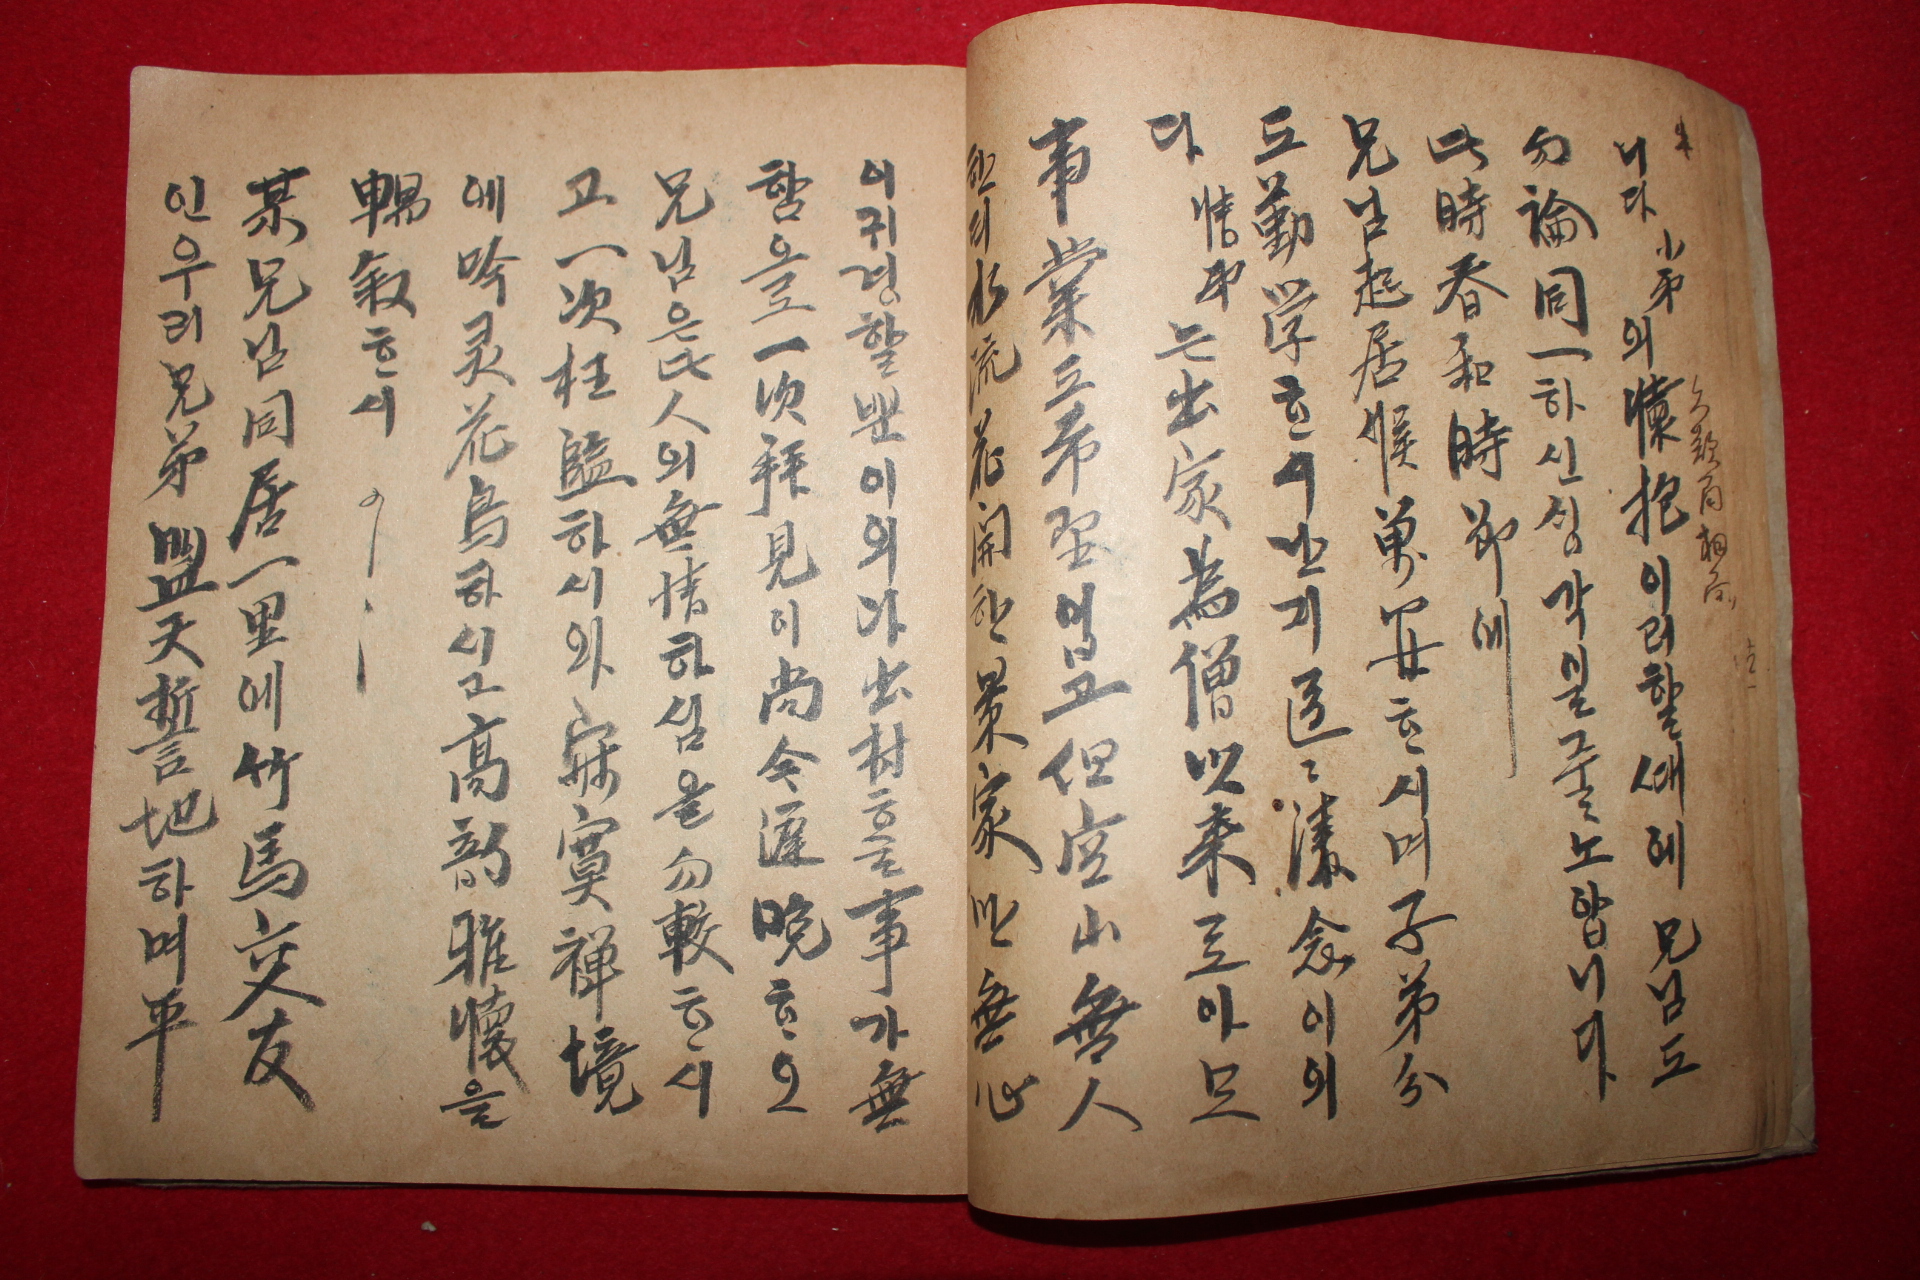 니다 小弟의 懷抱이러할 세 兄님도
勿論同一하신 싱각인줄노암니다
此時春和時節에
兄님起居候萬安하시며 子弟分
도勤学하시난지 遠〻漆念이의
다 情弟는出家為僧以来로아모
事業도希望업고 但空山無人
한의水流花開한景家 無心
이귀경할뿐이외다 出村흐는事가無
함으로一次拜見이尚今遲晩하오
兄님은此人의無情하심을勿較하시
고一次枉臨하시와 寂寞禅境
에吟灵花鳥하시고高韵雅懷을
暢叙하시
某兄님同居一里에竹馬交友
인우리兄弟盟天誓地하며平